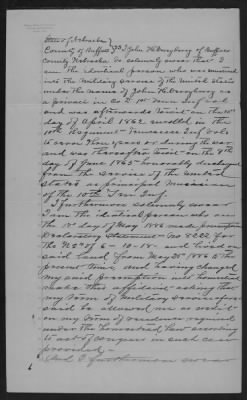 State of Nebraska
County of Buffalo } SS I John H. of Buffalo
County Nebraska do solemnly swear that I
am the identical person who was mustered
into the Military service of the United States
under the name of John H. as
a private in Co. 1st Inf. Vol
and was afterwards to wit on the
day of April 1862 enrolled in the
10th Regiment Tennessee Inf Vols
to serve three years or during the war
and was thereafter to wit on the
day of June 1865 honorably discharged
from the service of the United
States as principal Musician
of the 10th Tenn Inf.
I furthermore solemnly swear
I am the identical person who on
the 1st day of May 1886 made preemption
Declaratory Statement No
for the N½ of 6-10-18- and lived on
said land from May 20th 1886 to the
present time and having changed
my said preemption into homestead
make this affidavit asking that
my term of Military service afore-
said be allowed me as credit
on my term of residence required
under the homestead law according
to act of congress in such case
provided.
And I furthermore swear